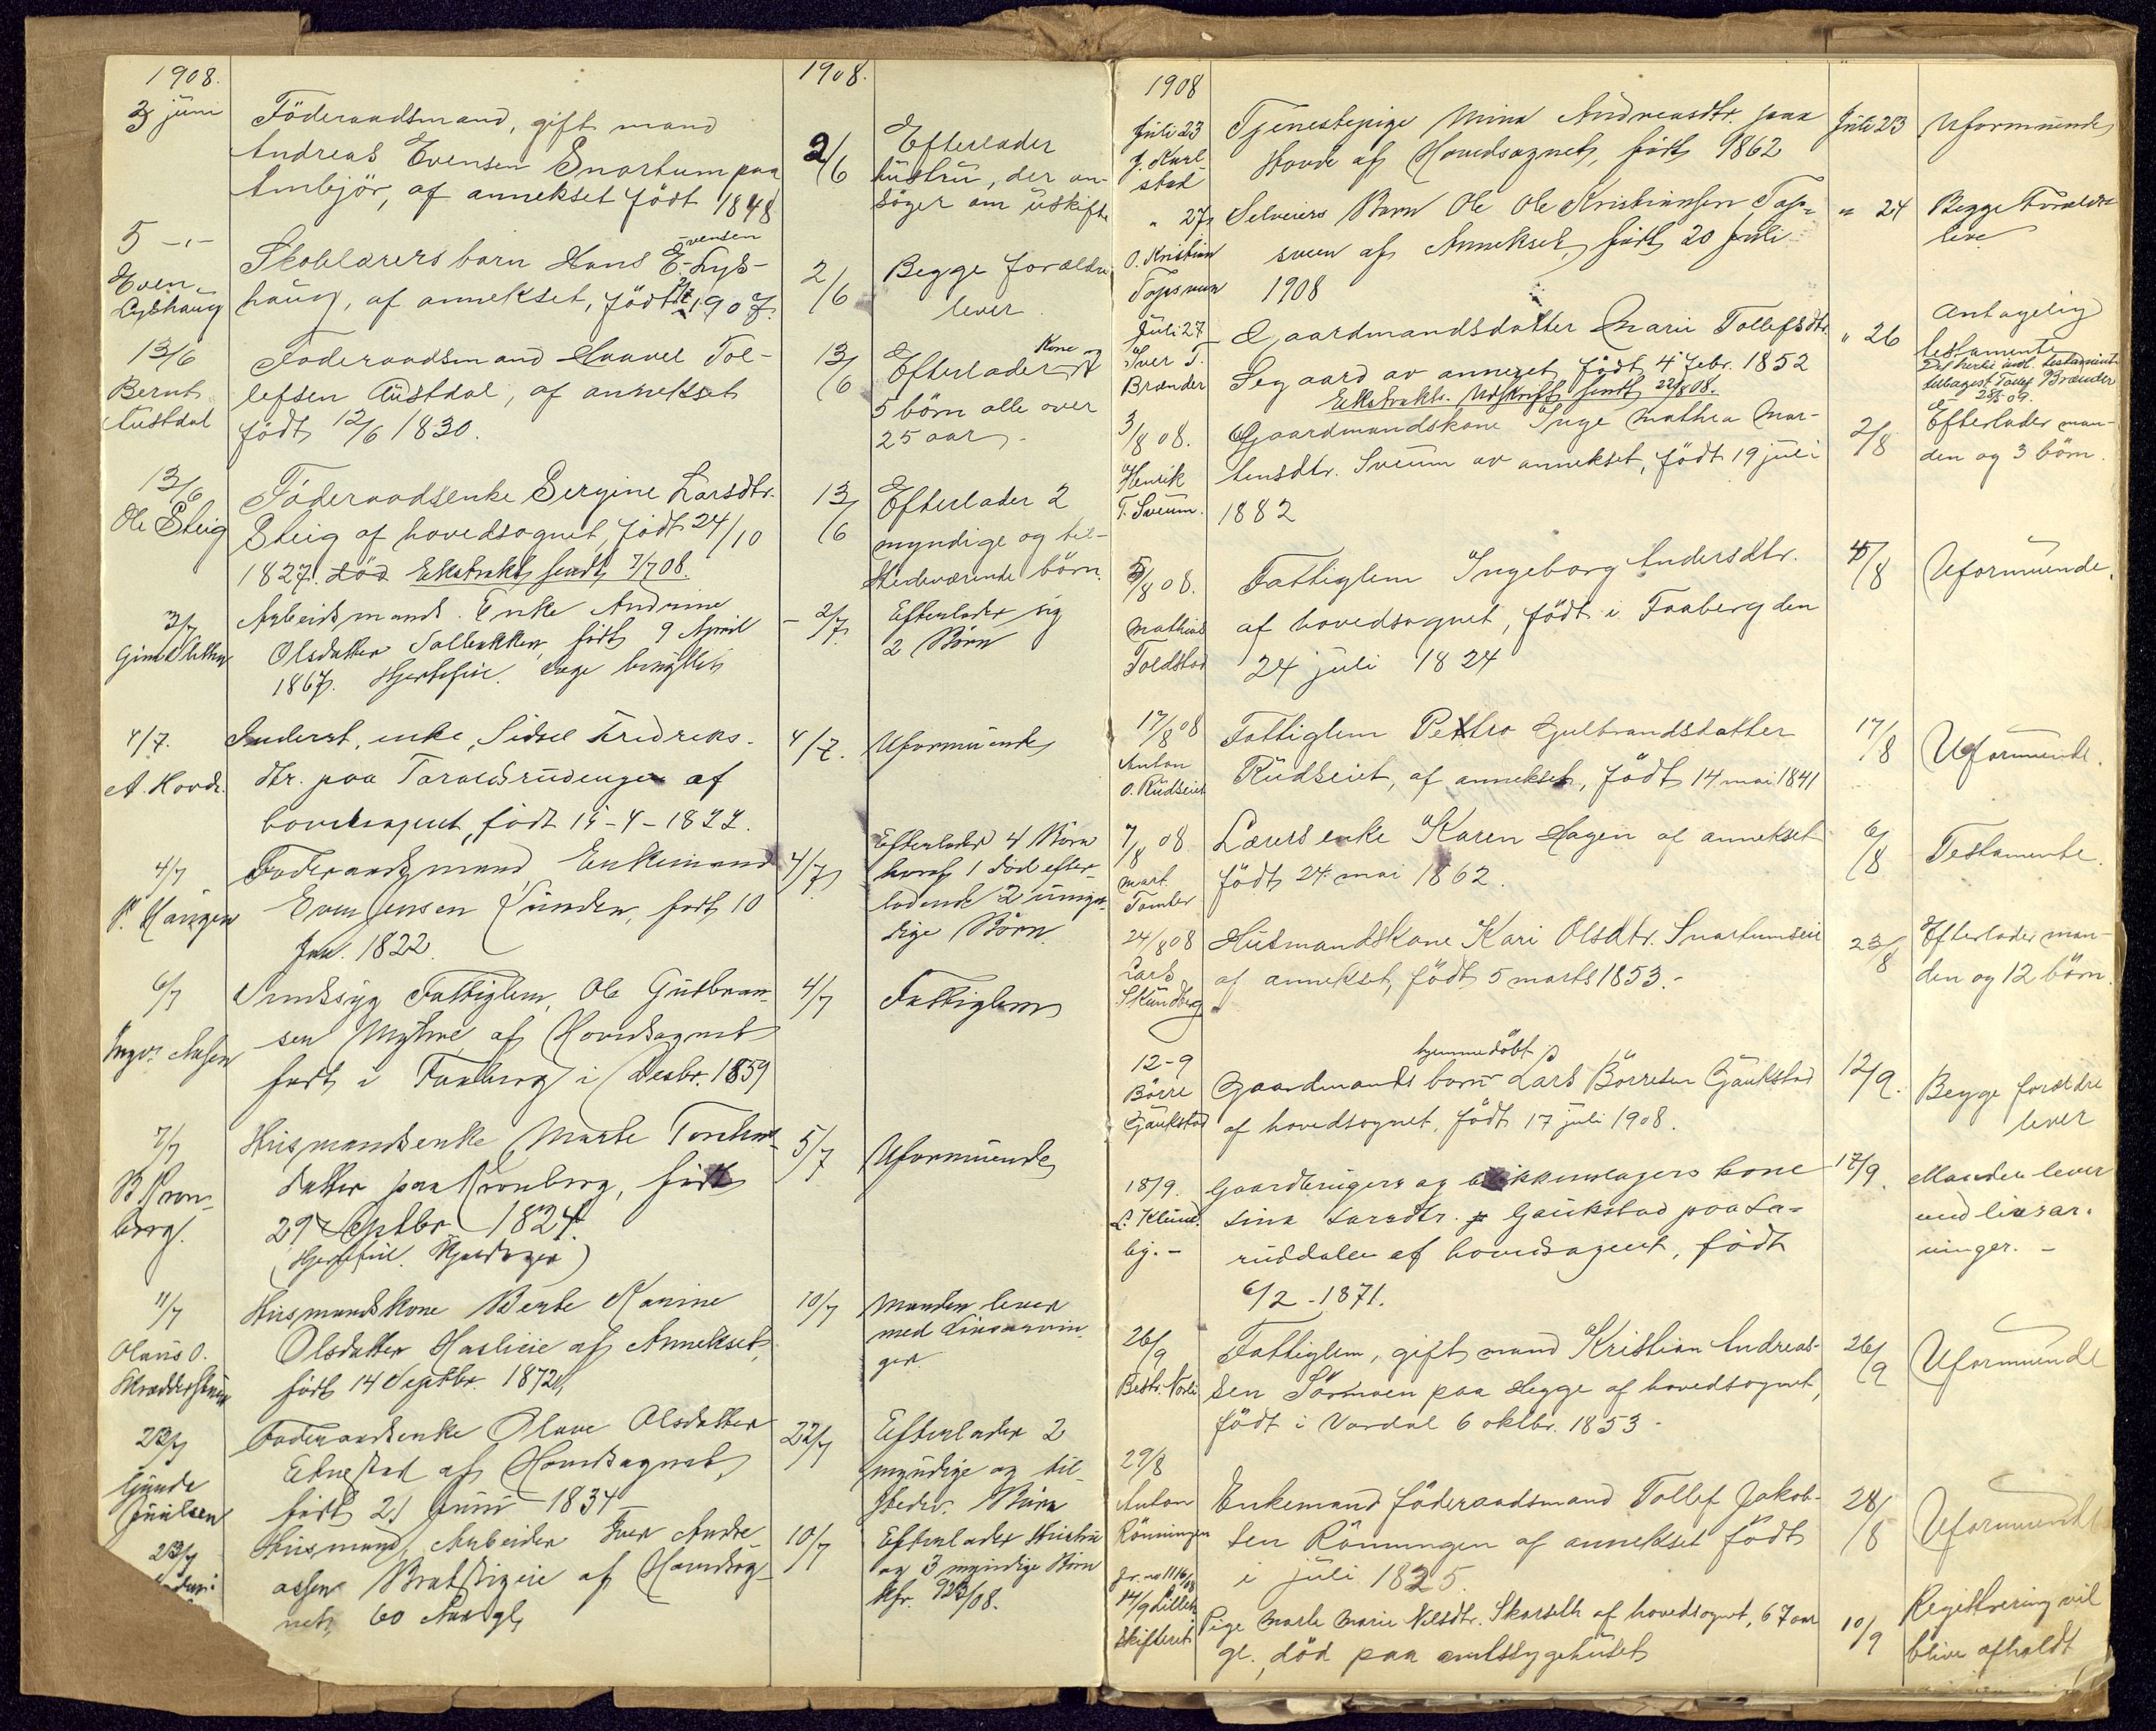 1908.
3 juni
Föderaadsmand, gift mand
Andreas Evensen Snortum paa
Ambjör, af annekset född 1848
1908.
2/6
Efterlader
hustru, der an-
söger om uskifte
5 -"-
Even
Lyshaug
Skolelærers barn Hans E-vensen Lys-
haug, af annekset, född 1907.
2/6
Begge forældre
lever
13/6
Bernt
Austdal
Föderaadsmand Haavel Tol-
lefsen Austdal, af annekset
född 12/6 1830.
13/6
Efterlader Kone og
5 börn alle over
25 aar.
13/6
Ole Steig
Föderaadsenke Sergine Larsdtr.
Steig af hovedsognet, född 24/10
1827. död Ekstrakt sendt 7/7 08.
13/6
Efterlader 2
myndige og til-
stedeværende börn.
3/7
Arbeidsmands Enke Andrine
Olsdatter Solbakken födt 9 April
1867. Hjertefeil.
2/7
Efterlader sig
2 Börn
4/7.
A. Hovde.
Inderst, enke, Sidsel Fredriks-
dtr. paa Taraldsrudengen af
hovedsognet, födt
4/7.
Uformuende
4/7
P. Haugen
Föderaadsmand Enkemand
Even Jensen Sünden, födt 10
Jan. 1822.
4/7
Efterlader 4 Börn
hvoraf 1 död efter-
ladende 2 umyn-
dige Börn.
6/7
Sindssyg Fattiglem, Ole Gulbran-
sen Myhre af Hovedsognet
födt i Faaberg i Desbr. 1859
4/7
Fattiglem
7/7
B. Kron-
borg.
Husmandsenke Marte
datter paa Kronborg, födt
29 Septbr. 1824.
5/7
Uformuende
11/7
Olaus O.
Husmandskone Berte Karine
Olsdatter Haslieie af Annekset,
födt 14 Septbr. 1872,
10/7
Manden lever
med Livsarvin-
ger.
22/7
Gunde
Föderaadsenke Olave Olsdatter
af Hovedsognet,
födt 21 Juni 1834
22/7
Efterlader 2
myndige og til-
stedev. Börn
23/7
Husmand, Arbeider Iver Andre-
assen af Hovedsog-
net, 60 Aar gl,
10/7
Efterlader Hustru
og 3 myndige Börn
1908
Juli 23
J. Karl-
stad
Tjenestepige Mina Andreasdtr. paa
Hovde af Hovedsognet, födt 1862
Juli 23
Uformuende
" 27
O. Kristian
Selveiers Barn Ole Ole Kristiansen Top-
sveen af Annekset, födt 20 Juli
1908
" 24
Begge Forældre
leve
Juli 27
Iver T.
Brænder
Gaardmandsdatter Marie Tollefsdtr
Segaard av annexet, född 4 Febr. 1852
Ekstrakts. Udskrift sendt 22/8 08.
" 26
Antagelig
testamente
3/8 08.
Henrik
T. Sveum.
Gaardmandskone Inge Mathea Mar-
tinsdtr. Sveum av annekset, födt 19 juli
1882
2/8
Efterlader man-
den og 3 börn.
5/8 08.
Mathias
Toldstad
Fattiglem Ingeborg Andersdtr.
af hovedsognet, födt i Faaberg den
24 juli 1824
4/8
Uformuende.
17/8 08
Anton
O. Rudseiet
Fattiglem Petro Gulbrandsdatter
Rudseiet, af annekset, födt 14 mai 1841
17/8
Uformuende.
7/8 08
Mart.
Tomter
Lærers enke Karen Hagen af annekset
födt 24 mai 1862.
6/8
Testamente.
24/8 08
Lars
Skundberg
Husmandskone Kari Olsdtr. Snortumseie
af annekset, födt 5 marts 1853.-
23/8
Efterlader man-
den og 12 börn.
12-9
Börre
Gaukstad
hjemmedöbt
Gaardmands barn Lars Börresen Gaukstad
af hovedsognet, födt 17 juli 1908.
12/9.
Begge forældre
lever
18/9.
Gaardbrugers og blikkenslagers kone
Sina Larsdtr. Gaukstad paa Sa-
ruddalen af hovedsognet, födt
6/2 - 1871.
17/9.
Manden lever
med livsar-
vinger. -
26/9
Fattiglem, gift mand Kristian Andreas-
sen Sörmoen paa Hegge af hovedsognet,
födt i Vardal 6 oktbr. 1853 -
26/9
Uformuende
29/8
Anton
Rönningen
Enkemand föderaadsmand Tollef Jakob-
sen Rönningen af annekset födt
i juli 1825.
28/8
Uformuende
Jr. no 1116/08
14/9 Lilleh.
Skifteret
Pige Marte Marie Nilsdtr. Skarseth af hovedsognet, 67 aar
gl., död paa amtssygehuset
10/9
Registrering vil
blive afholdt